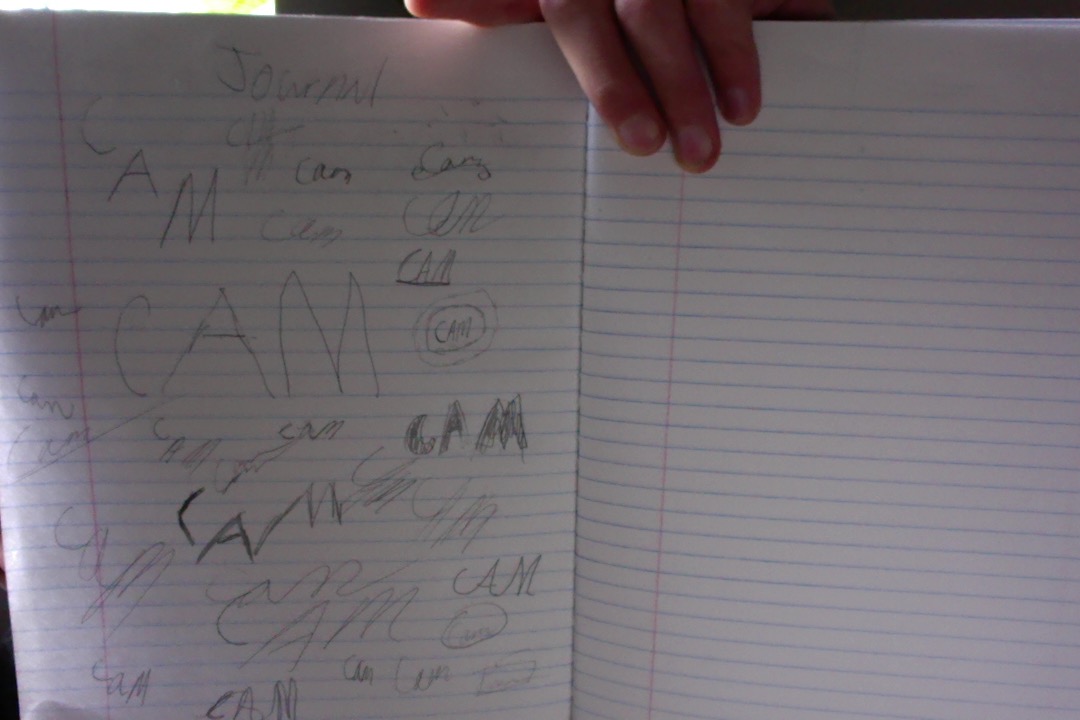 Journal
C
A
M
CAM
cam
Cam
Cam
CAM
CAM
CAM
CAM
Cam
Cam
Cam
CAM
cam
CAM
CAM
CAM
CAM
CAM
CAM
CAM
CAM
Cam
Cam
CAM